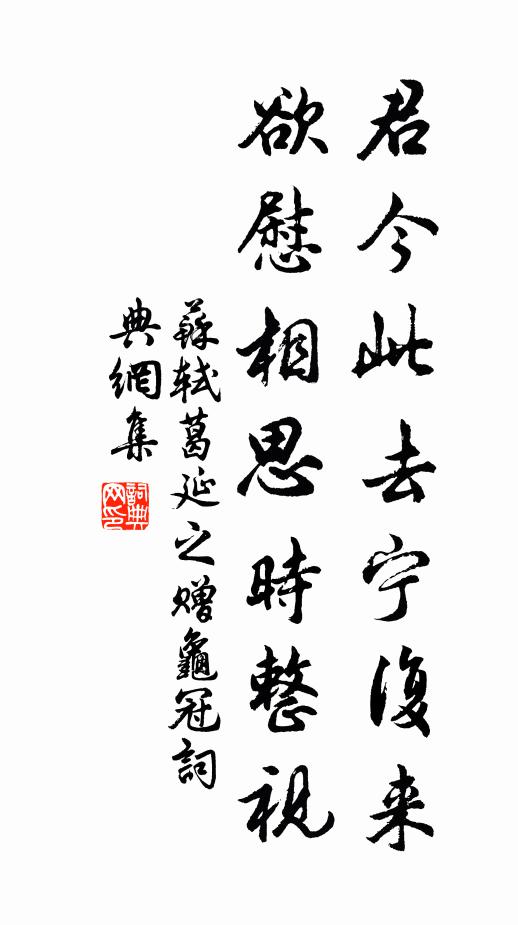 君今此去宁復来
欲慰相思時整視
蘇轼葛延之赠龜冠詞
典網集
詞典
网印